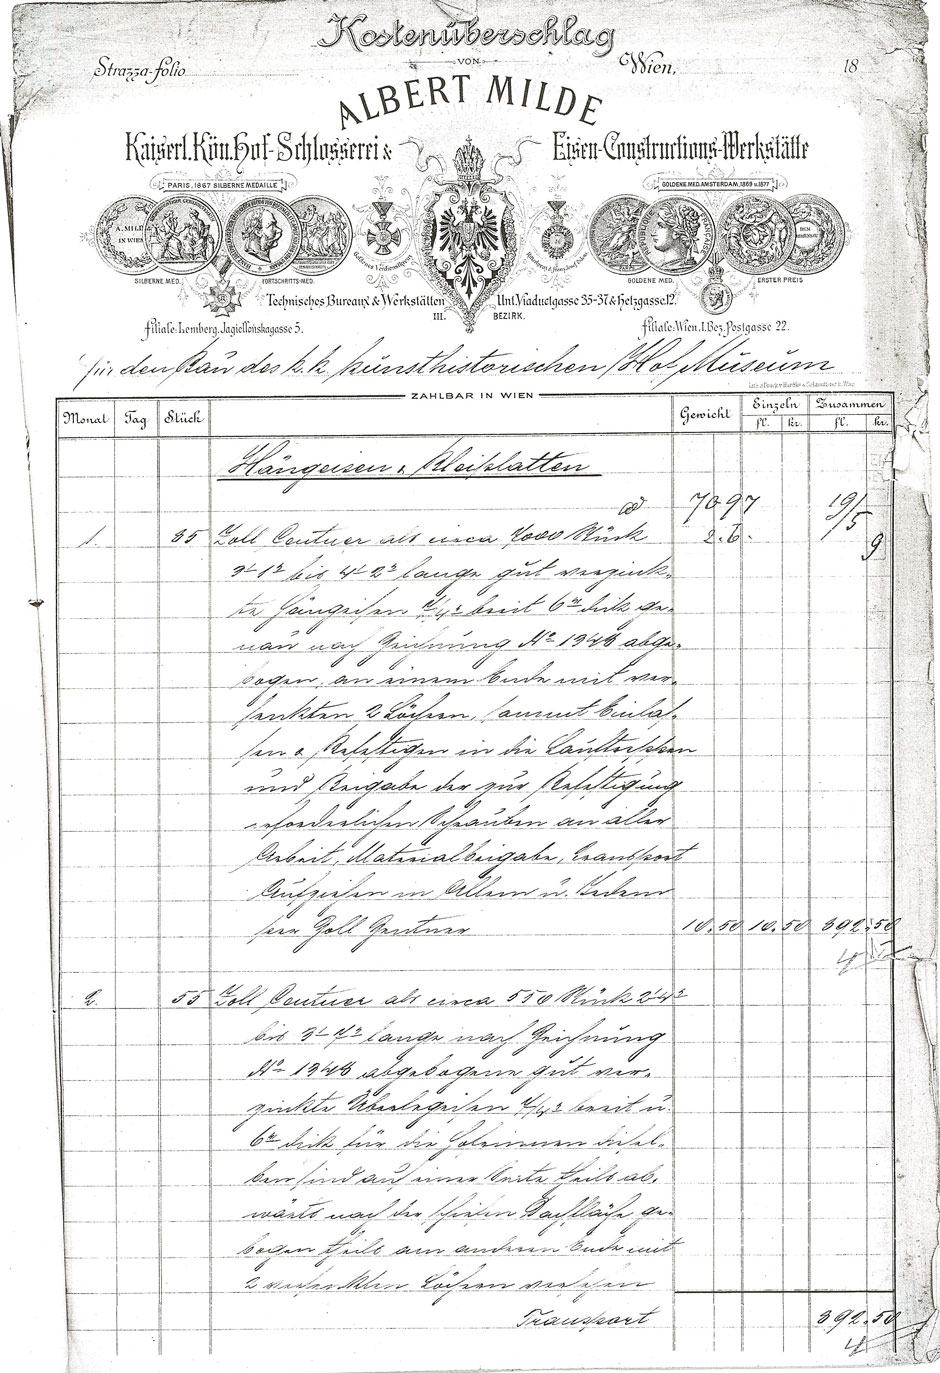 Kostenüberschlag
Strazza-folio Wien, 18
VON
ALBERT MILDE
Kaiserl. Kön. Hof-Schlosserei & Eisen-Constructions-Werkstätte
PARIS, 1867 SILBERNE MEDAILLE GOLDENE MED. AMSTERDAM, 1869 u. 1877
A. MILDE
IN WIEN
SILBERNE MED. FORTSCHRITTS-MED. GOLDENE MED. ERSTER PREIS
Technisches Bureau & Werkstätten Unt. Viaductgasse 35-37 & Hetzgasse 12.
III. BEZIRK.
Filiale: Lemberg, Jagiellońskagasse 5. Filiale: Wien, I. Bez. Postgasse 22.
für den Bau des k. k. kunsthistorischen Hof Museum
ZAHLBAR IN WIEN
Monat Tag Stück Gewicht Einzeln Zusammen
fl. kr. fl. kr.
Hängeisen &
7097 19/5
1. 35 Zoll Centner als circa 7000 Stück 9
bis lange gut verzink-
te Hängeisen breit 6 dick ge-
nau nach Zeichnung No 1348 abge-
bogen, an einem Ende mit ver-
senkten 2 Löchern, sammt Einlas-
sen & Befestigen in die
und Beigabe der zur Befestigung
erforderlichen Schrauben an aller
Arbeit, Materialbeigabe, Transport
Aufziehen in Allem u. Jedem
per Zoll Centner 10.50 10.50 392.50
2. 55 Zoll Centner als circa 550 Stück
bis lange nach Zeichnung
No 1348 abgebogene gut ver-
zinkte Überlegeisen breit u.
6 dick für die diesel-
ben sind auf einer Seite theils ab-
wärts nach der schiefen Dachfläche ge-
bogen theils am anderen Ende mit
2 versenkten Löchern versehen
Transport 392.50